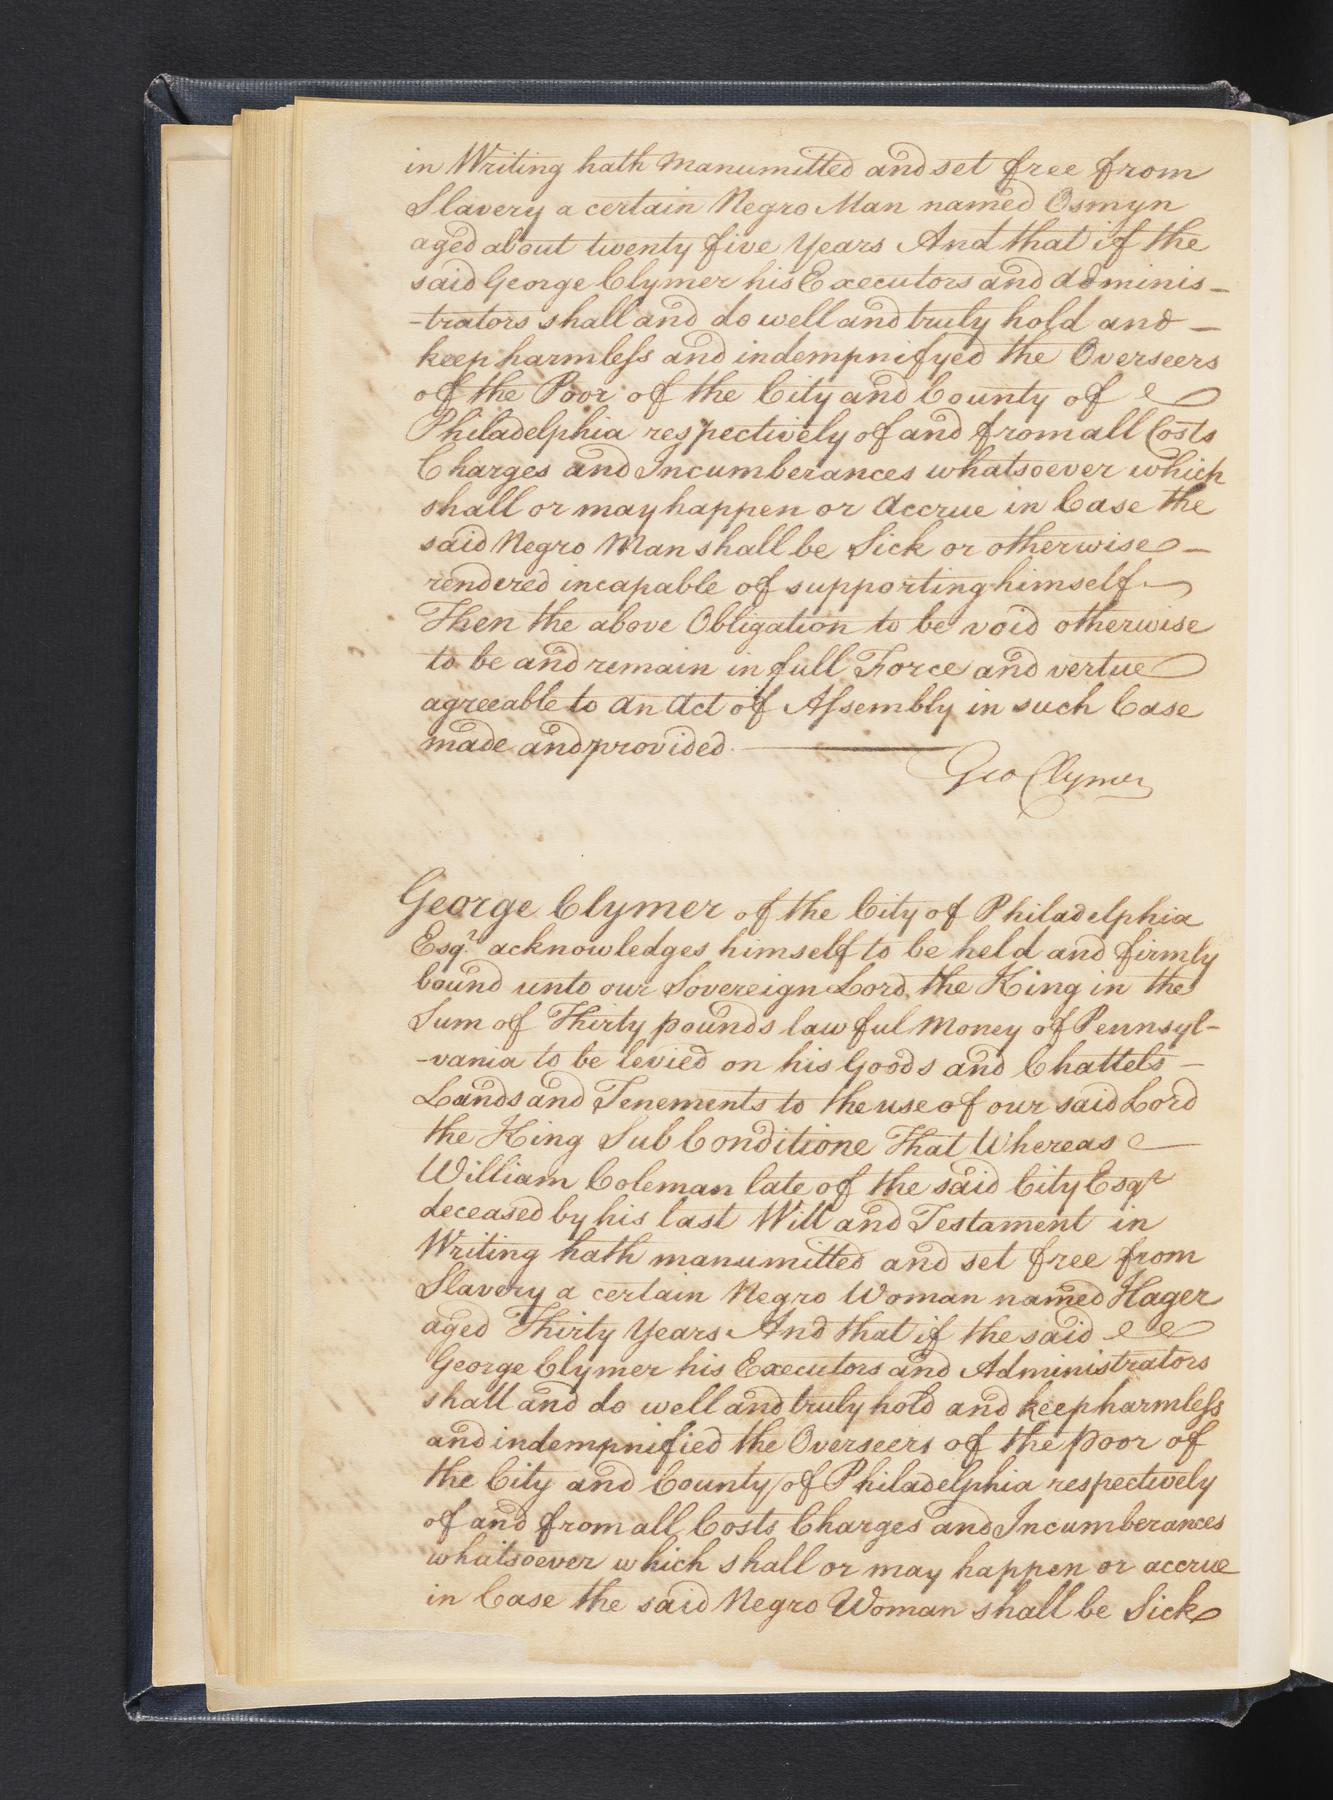 in Writing hath Manumitted and set free from
Slavery a certain Negro Man named Osmyn
aged about twenty five Years And that if the
said George Clymer his Executors and Adminis-
-trators shall and do well and truly hold and -
keep harmless and indempnifyed the Overseers
of the Poor of the City and County of
Philadelphia respectively of and from all Costs
Charges and Incumberances whatsoever which
shall or may happen or Accrue in Case the
said Negro Man shall be Sick or otherwise -
rendered incapable of supporting himself
Then the above Obligation to be void otherwise
to be and remain in full Force and vertue
agreeable to an Act of Assembly in such Case
made and provided.
Geo Clymer
George Clymer of the City of Philadelphia
Esqr. acknowledges himself to be held and firmly
bound unto our Sovereign Lord the King in the
Sum of Thirty pounds lawful Money of Pennsyl-
-vania to be levied on his Goods and Chattels -
Lands and Tenements to the use of our said Lord
the King Sub Conditione That Whereas
William Coleman late of the said City Esqr
deceased by his last Will and Testament in
Writing hath manumitted and set free from
Slavery a certain Negro Woman named Hager
aged Thirty Years And that if the said
George Clymer his Executors and Administrators
shall and do well and truly hold and keep harmless
and indempnified the Overseers of the poor of
the City and County of Philadelphia respectively
of and from all Costs Charges and Incumberances
whatsoever which shall or may happen or accrue
in Case the said Negro Woman shall be Sick